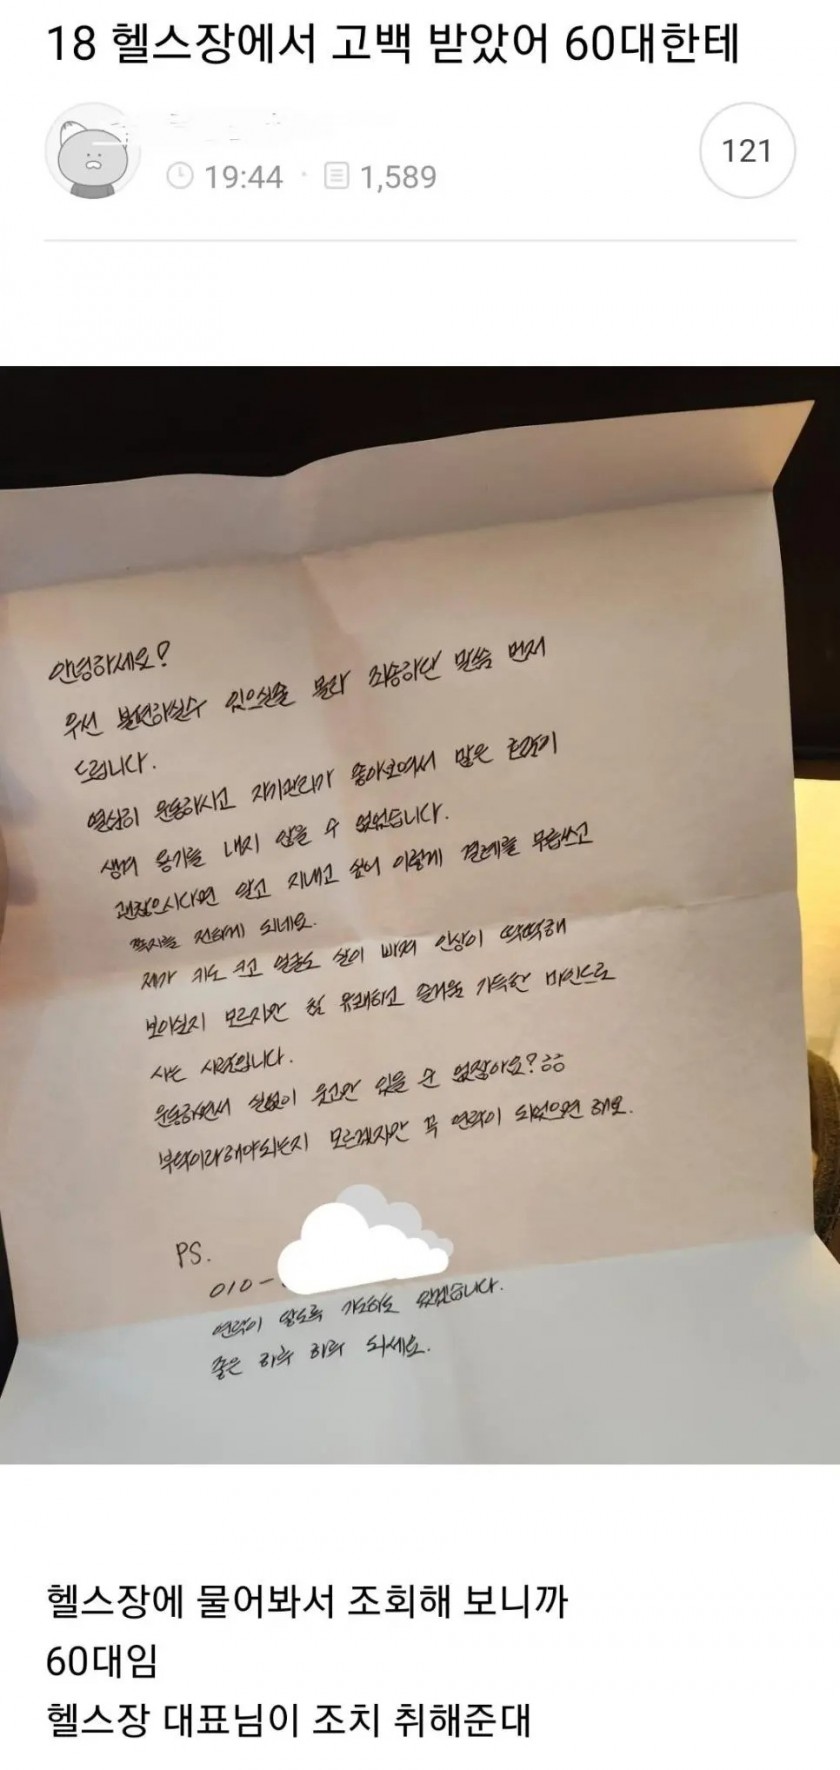 18 헬스장에서 고백 받았어 60대한테
19:44 · 1,589
121
안녕하세요?
우선 불편하실수 있으실줄 몰라 죄송하단 말씀 먼저
드립니다.
열심히 운동하시고 자기관리가 좋아보여서 많은 호감이
생겨 용기를 내지 않을 수 없었습니다.
괜찮으시다면 알고 지내고 싶어 이렇게 결례를 무릅쓰고
쪽지를 전하게 되네요.
제가 키도 크고 얼굴도 살이 빠져 인상이 딱딱해
보이실지 모르지만 참 유쾌하고 즐거움 가득한 마인드로
사는 사람입니다.
운동하면서 실없이 웃고만 있을 순 없잖아요?ㅎㅎ
부탁이라해야되는지 모르겠지만 꼭 연락이 되었으면 해요.
PS.
010-
연락이 않도록 기도하도 있겠습니다.
좋은 하루 하루 되세요.
헬스장에 물어봐서 조회해 보니까
60대임
헬스장 대표님이 조치 취해준대